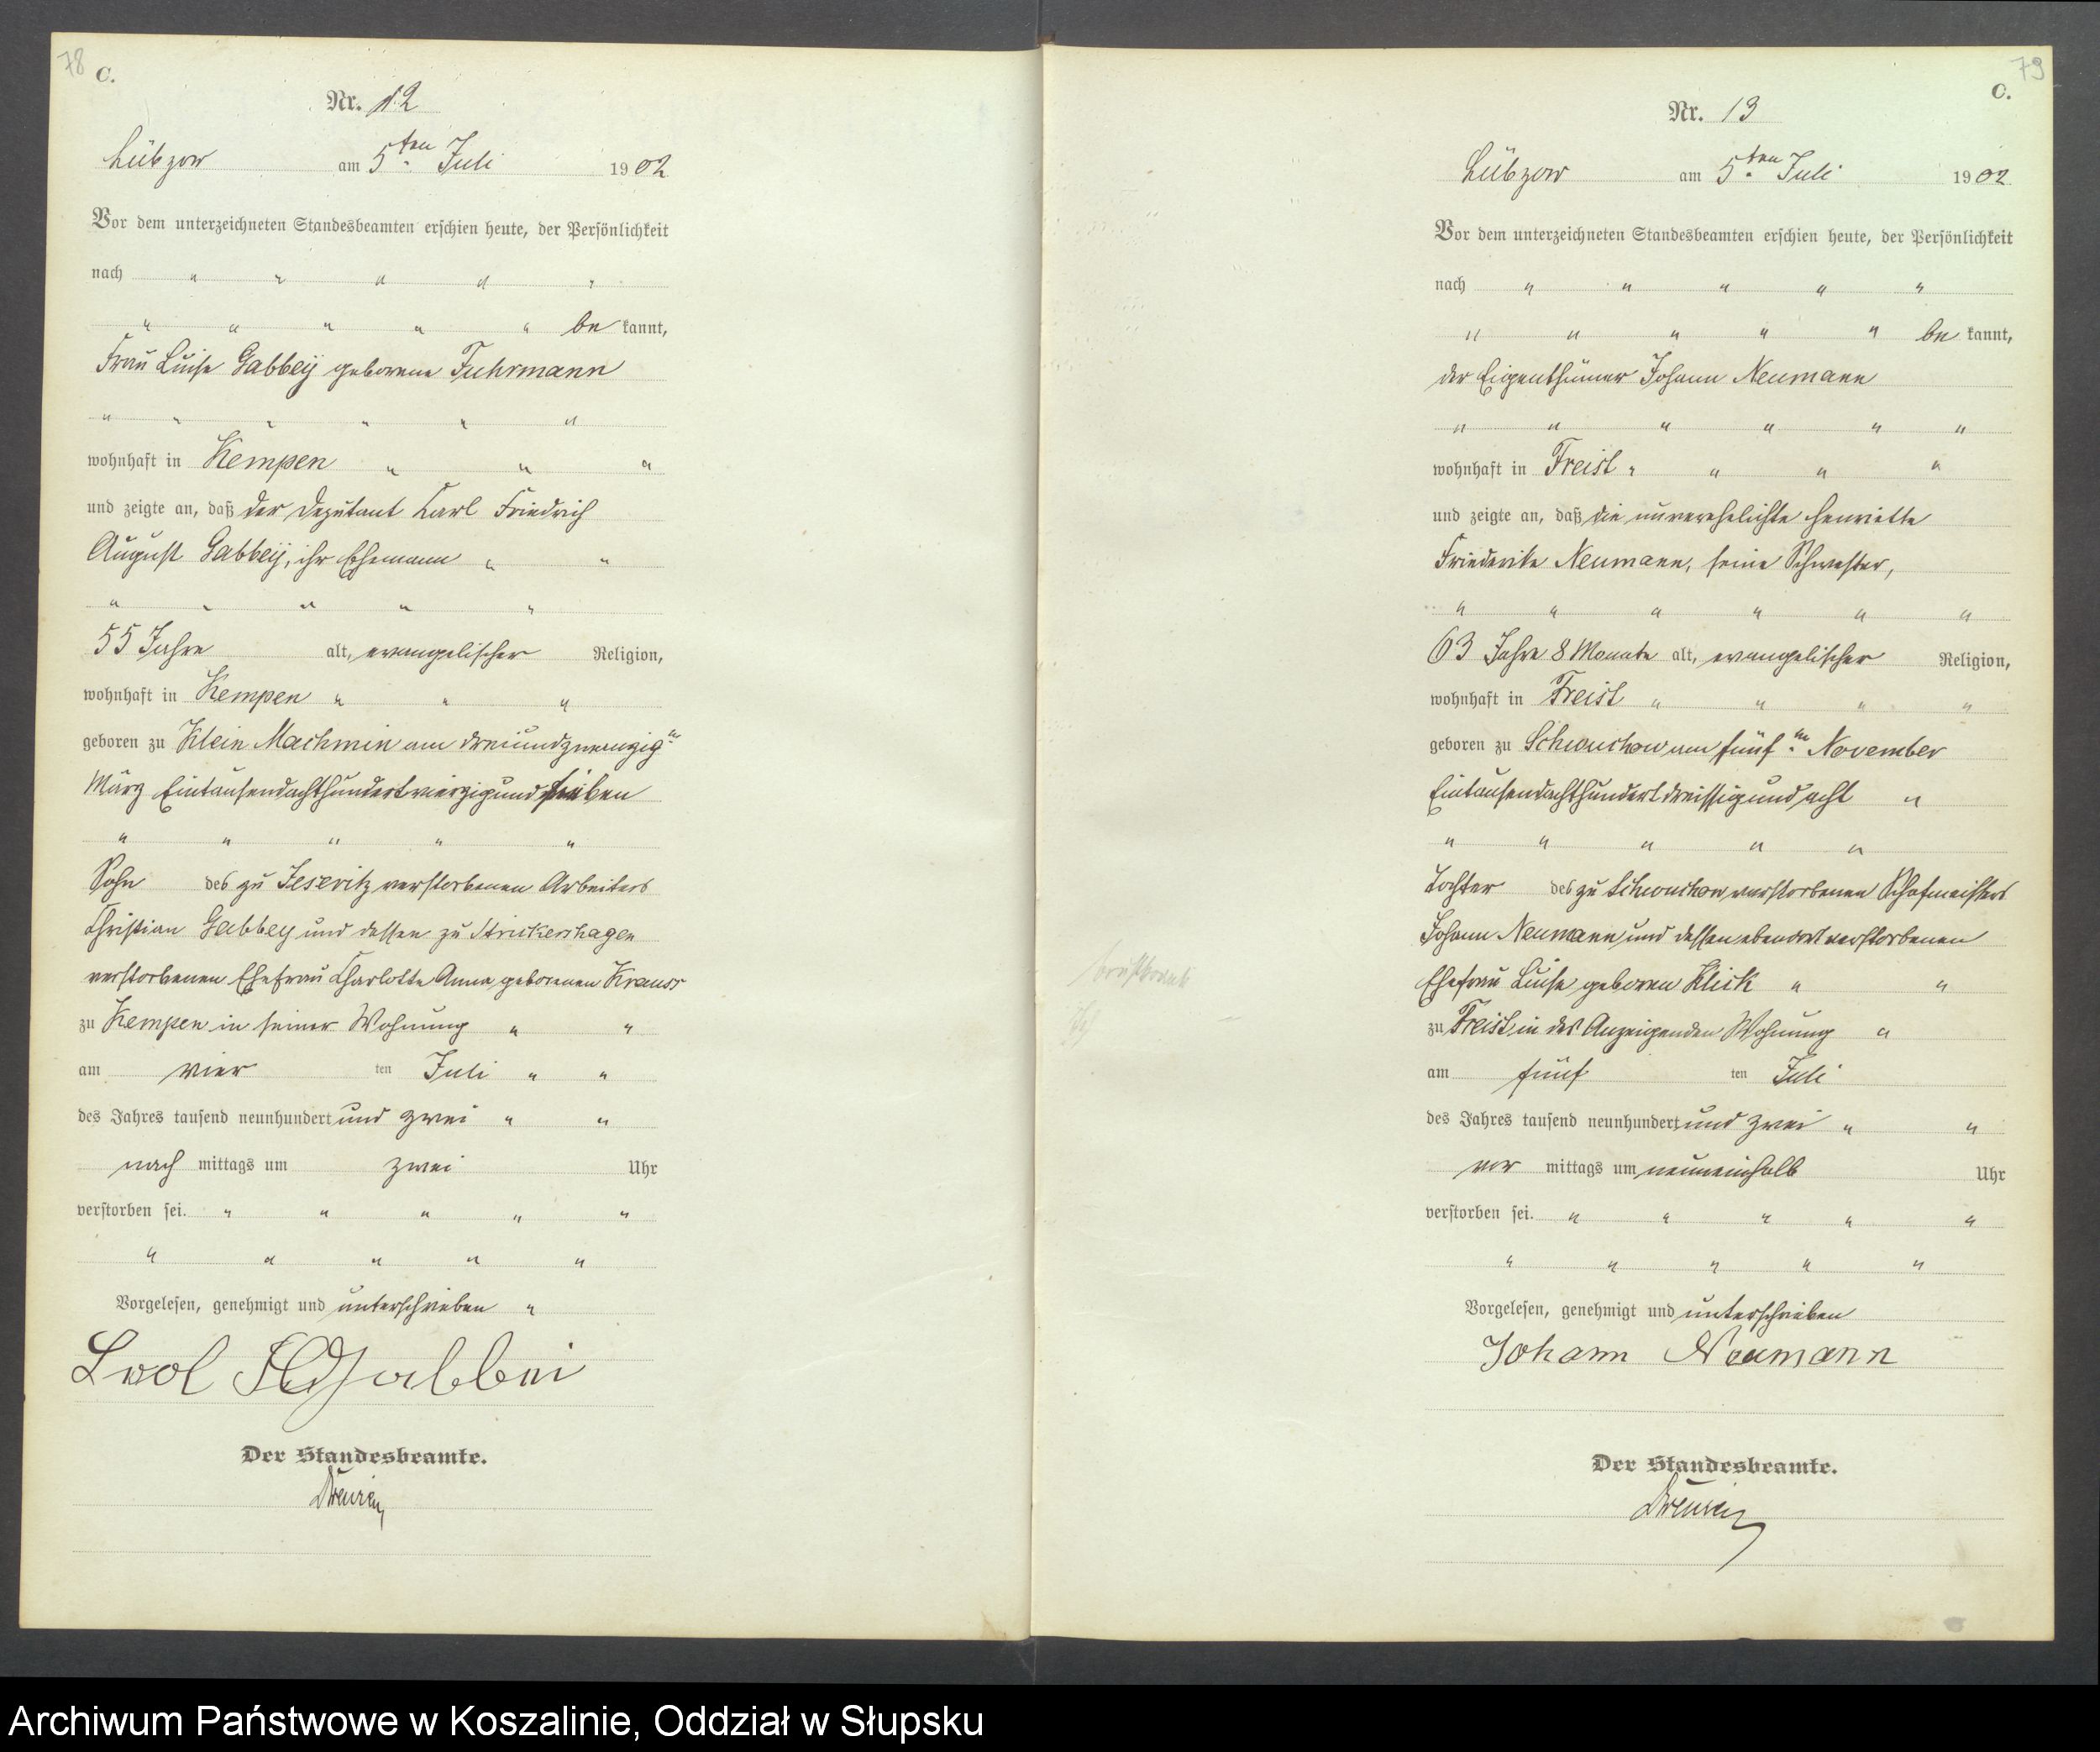 78
C.
Nr. 12
Lübzow am 5ten Juli 1902
Vor dem unterzeichneten Standesbeamten erschien heute, der Persönlichkeit
nach
be kannt,
Frau Luise Gabbeÿ geborene Fuhrmann
wohnhaft in Kempen
und zeigte an, daß der Deputant Karl Friedrich
August Gabbeÿ, ihr Ehemann
55 Jahre alt, evangelischer Religion,
wohnhaft in Kempen
geboren zu Klein Machmin am dreiundzwanzigten
März Eintausendachthundertvierzigundsieben
Sohn des zu Jeseritz verstorbenen Arbeiters
Christian Gabbey und dessen zu Strickershagen
verstorbenen Ehefrau Charlotte Anna geborenen Krauser
zu Kempen in seiner Wohnung
am vier ten Juli
des Jahres tausend neunhundert und zwei
nach mittags um zwei Uhr
verstorben sei.
Vorgelesen, genehmigt und unterschrieben
Gabbei
Der Standesbeamte.
79
C.
Nr. 13
Lübzow am 5ten Juli 1902
Vor dem unterzeichneten Standesbeamten erschien heute, der Persönlichkeit
nach
be kannt,
der Eigenthümer Johann Neumann
wohnhaft in Freist
und zeigte an, daß die unverehelichte Henriette
Friederike Neumann, seine Schwester,
63 Jahre 8 Monate alt, evangelischer Religion,
wohnhaft in Freist
geboren zu Schwuchow am fünften November
Eintausendachthundertdreissigundacht
Tochter des zu Schwuchow verstorbenen Schafmeisters
Johann Neumann und dessen ebendort verstorbenen
Ehefrau Luise geboren Klick
zu Freist in des Anzeigenden Wohnung
am fünf ten Juli
des Jahres tausend neunhundert und zwei
vor mittags um neuneinhalb Uhr
verstorben sei.
Vorgelesen, genehmigt und unterschrieben
Johann Neumann
Der Standesbeamte.
Archiwum Państwowe w Koszalinie, Oddział w Słupsku